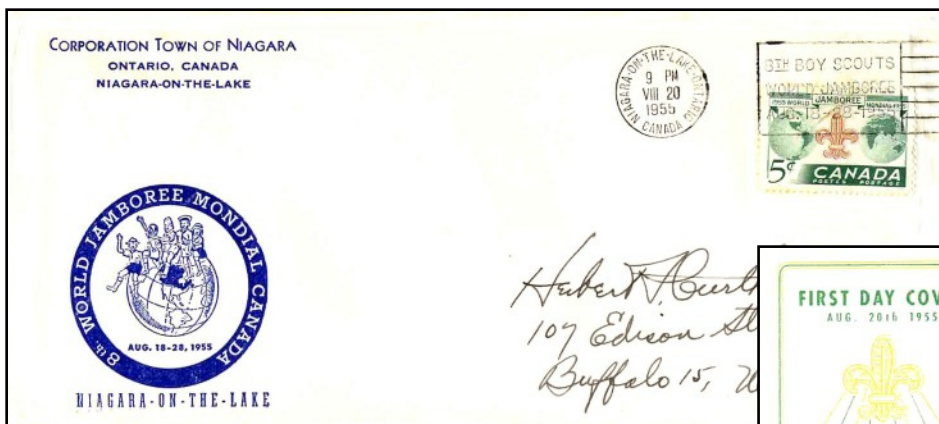 CORPORATION TOWN OF NIAGARA
ONTARIO, CANADA
NIAGARA-ON-THE-LAKE
NIAGARA-ON-THE-LAKE-ONTARIO
9 PM
VIII 20
1955
CANADA
8TH BOY SCOUTS
WORLD JAMBOREE
AUG.18-28-1955
1955 WORLD JAMBOREE MONDIAL
5¢ CANADA
POSTES POSTAGE
8th WORLD JAMBOREE MONDIAL CANADA
AUG. 18-28, 1955
NIAGARA-ON-THE-LAKE
Herbert
107 Edison
Buffalo 15,
FIRST DAY COV
AUG. 20th 1955